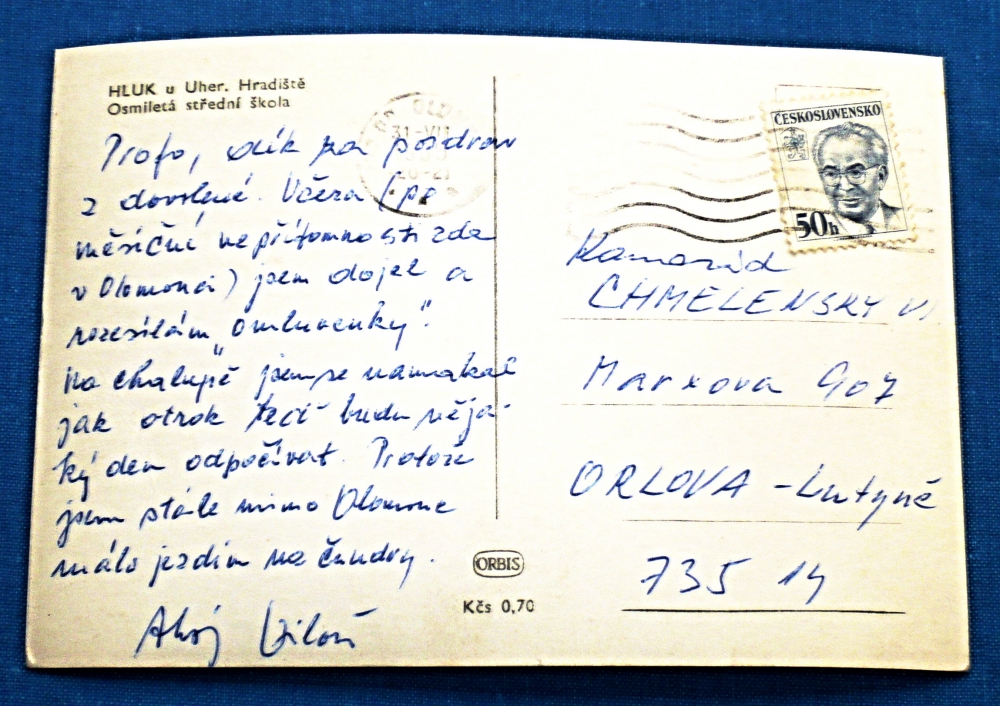 HLUK u Uher. Hradiště
Osmiletá střední škola
Profo, dík za pozdrav
z dovolené. Včera (po
měsíční nepřítomnosti zde
v Olomouci) jsem dojel a
rozesílám „omluvenky".
Na chalupě jsem se namakal
jak otrok teď budu něja-
ký den odpočívat. Protože
jsem stále mimo Olomouc
málo jezdím na čundry.
Ahoj
ORBIS
Kčs 0,70
31.VII
ČESKOSLOVENSKO
50h
Kamarád
CHMELENSKY V.
Marxova 907
ORLOVA - Lutyně
735 14